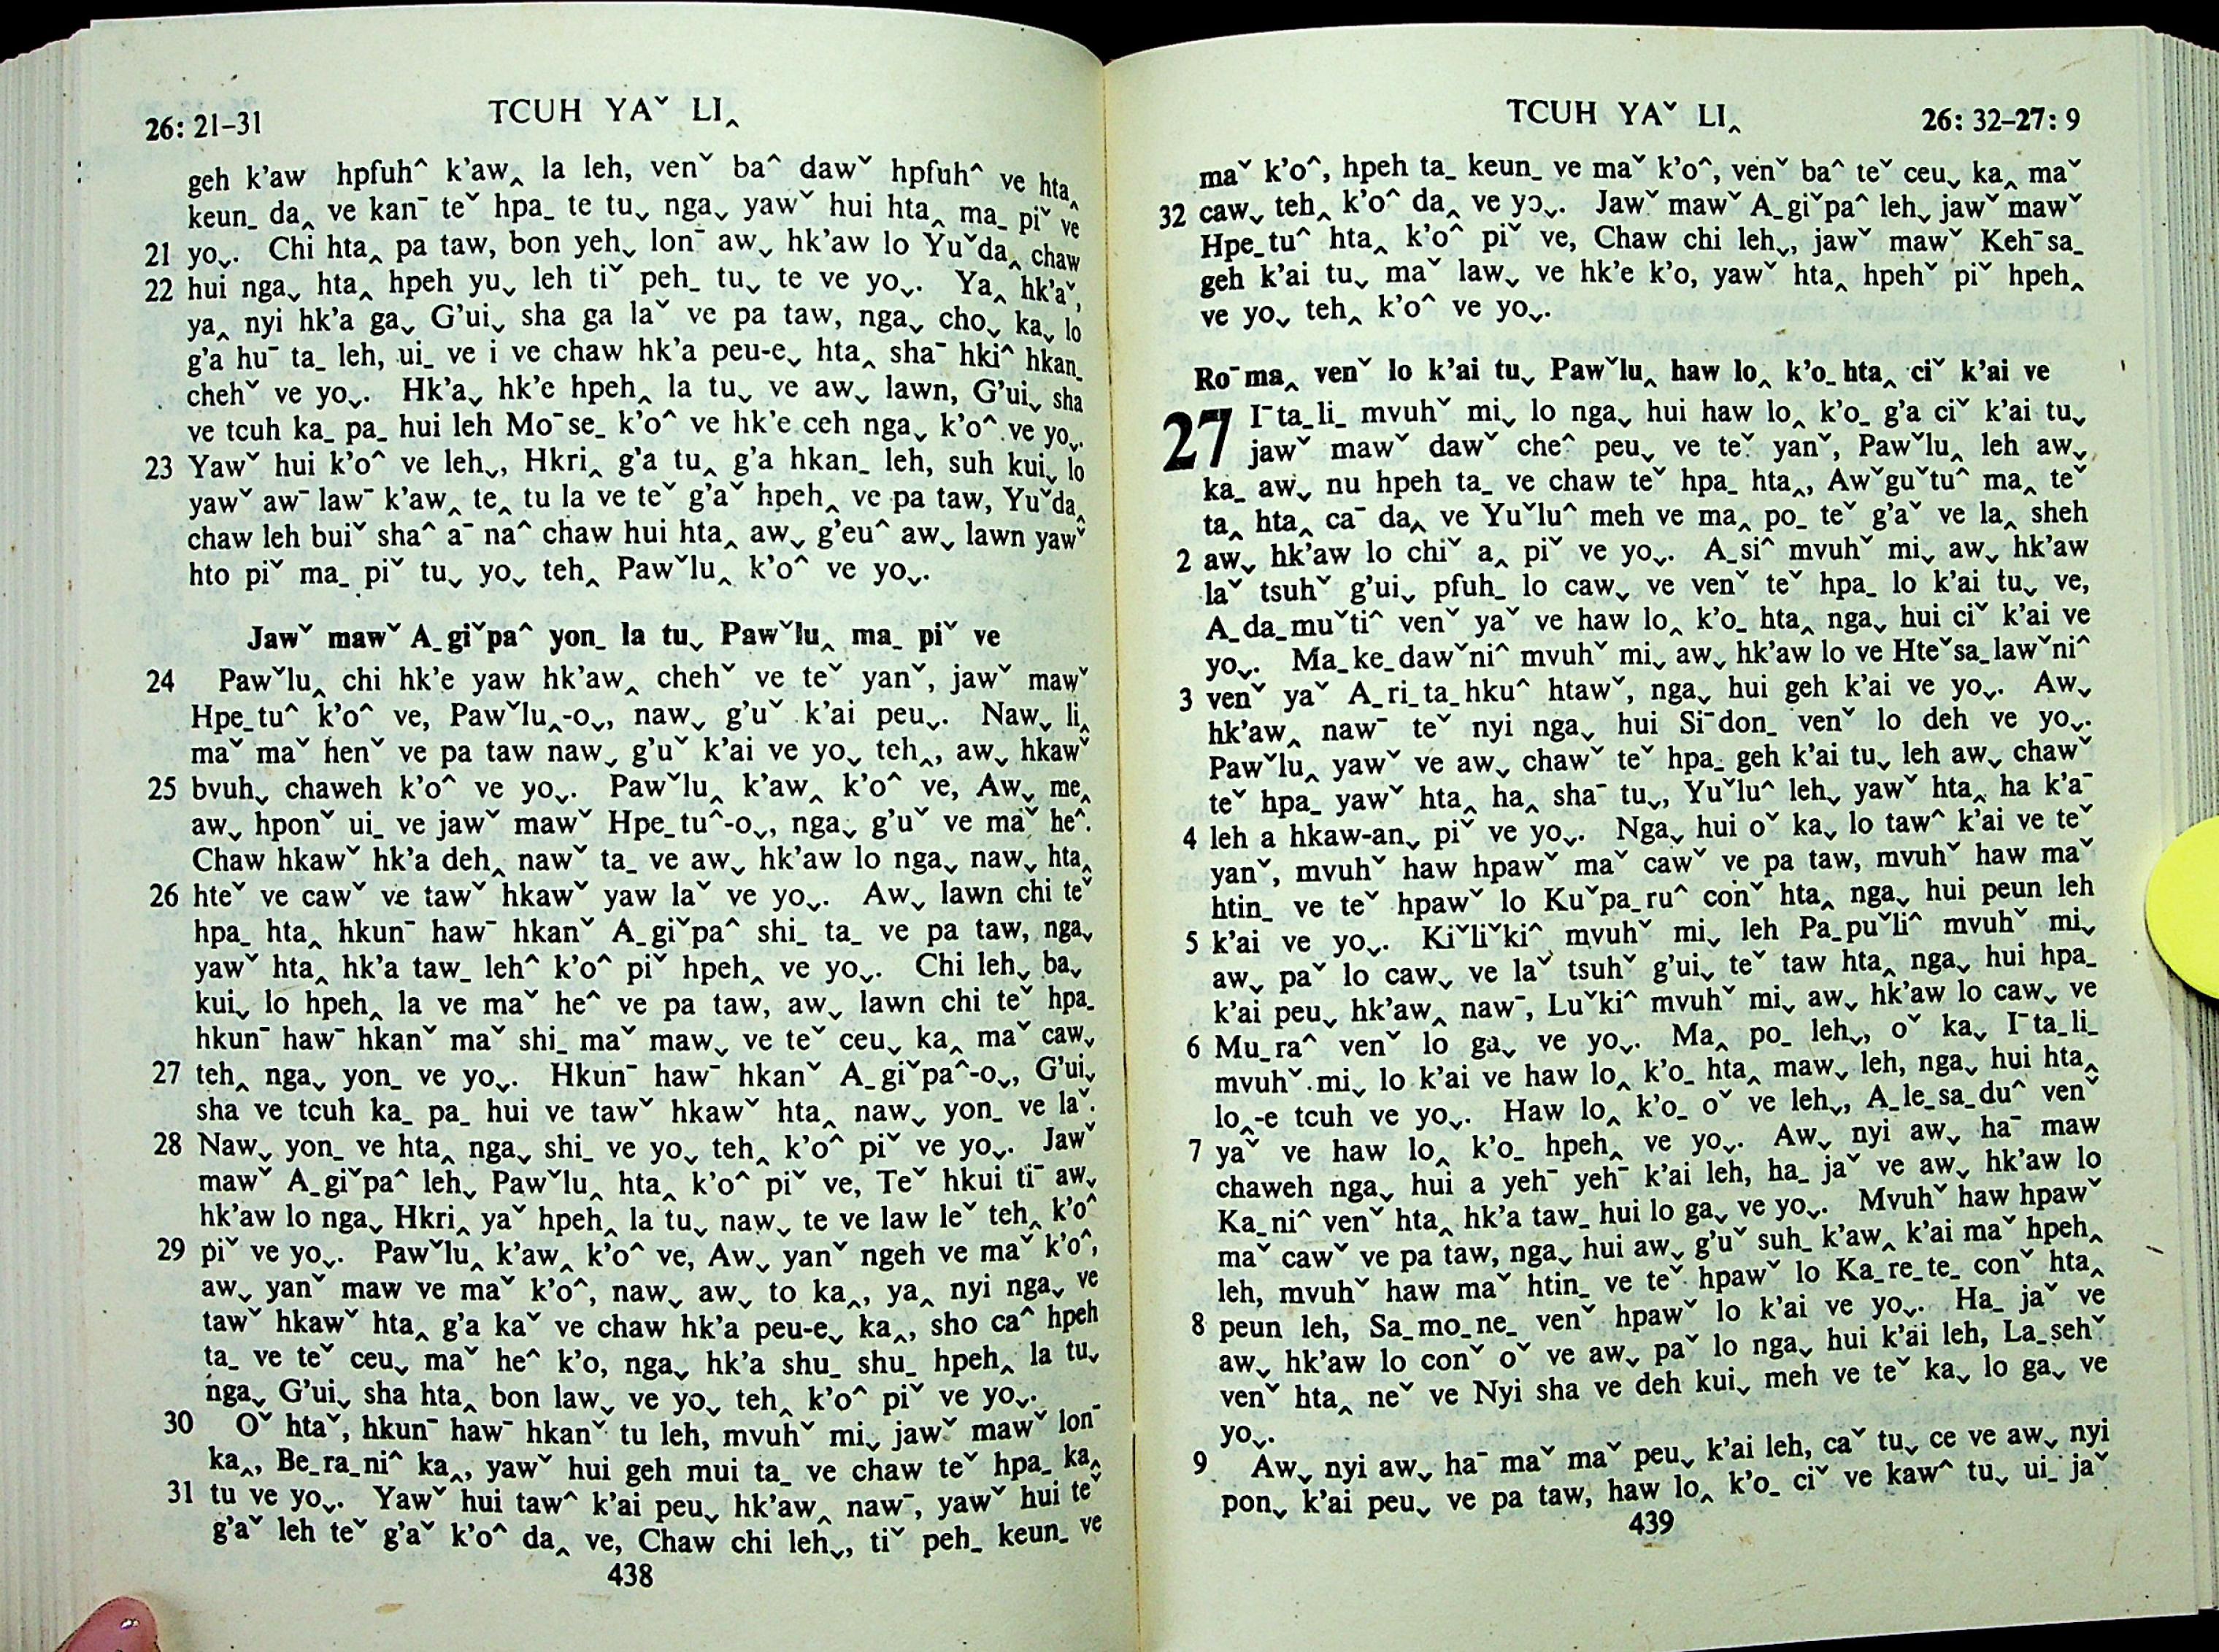 26: 21–31
TCUH YAˇ LI‸
geh k'aw hpfuh^ k'aw‸ la leh, venˇ ba^ dawˇ hpfuh^ ve hta‸
keun_ da‸ ve kan¯ teˇ hpa_ te tu˯ nga˯ yawˇ hui hta‸ ma_ piˇ ve
21 yo˯. Chi hta‸ pa taw, bon yeh˯ lon¯ aw˯ hk'aw lo Yuˇda‸ chaw
22 hui nga˯ hta‸ hpeh yu˯ leh tiˇ peh_ tu˯ te ve yo˯. Ya‸ hk'aˇ,
ya‸ nyi hk'a ga˯ G'ui˯ sha ga laˇ ve pa taw, nga˯ cho˯ ka˯ lo
g'a hu¯ ta_ leh, ui_ ve i ve chaw hk'a peu-e˯ hta‸ sha¯ hki^ hkan_
chehˇ ve yo˯. Hk'a˯ hk'e hpeh‸ la tu˯ ve aw˯ lawn, G'ui˯ sha
ve tcuh ka_ pa_ hui leh Mo¯se_ k'o^ ve hk'e ceh nga˯ k'o^ ve yo˯.
23 Yawˇ hui k'o^ ve leh˯, Hkri‸ g'a tu‸ g'a hkan_ leh, suh kui˯ lo
yawˇ aw¯ law¯ k'aw‸ te‸ tu la ve teˇ g'aˇ hpeh‸ ve pa taw, Yuˇda‸
chaw leh buiˇ sha^ a¯ na^ chaw hui hta‸ aw˯ g'eu^ aw˯ lawn yawˇ
hto piˇ ma_ piˇ tu˯ yo˯ teh‸ Pawˇlu‸ k'o^ ve yo˯.
Jawˇ mawˇ A_giˇpa^ yon_ la tu˯ Pawˇlu‸ ma_ piˇ ve
24 Pawˇlu‸ chi hk'e yaw hk'aw‸ chehˇ ve teˇ yanˇ, jawˇ mawˇ
Hpe_tu^ k'o^ ve, Pawˇlu‸-o˯, naw˯ g'uˇ k'ai peu˯. Naw˯ li‸
maˇ maˇ henˇ ve pa taw naw˯ g'uˇ k'ai ve yo˯ teh‸, aw˯ hkawˇ
25 bvuh˯ chaweh k'o^ ve yo˯. Pawˇlu‸ k'aw‸ k'o^ ve, Aw˯ me‸
aw˯ hponˇ ui_ ve jawˇ mawˇ Hpe_tu^-o˯, nga˯ g'uˇ ve maˇ he^.
Chaw hkawˇ hk'a deh‸ nawˇ ta_ ve aw˯ hk'aw lo nga˯ naw˯ hta‸
26 hteˇ ve cawˇ ve tawˇ hkawˇ yaw laˇ ve yo˯. Aw˯ lawn chi teˇ
hpa_ hta‸ hkun¯ haw¯ hkanˇ A_giˇpa^ shi_ ta_ ve pa taw, nga˯
yawˇ hta‸ hk'a taw_ leh^ k'o^ piˇ hpeh‸ ve yo˯. Chi leh˯ ba˯
kui˯ lo hpeh‸ la ve maˇ he^ ve pa taw, aw˯ lawn chi teˇ hpa_
hkun¯ haw¯ hkanˇ maˇ shi_ maˇ maw˯ ve teˇ ceu˯ ka‸ maˇ caw˯
27 teh‸ nga˯ yon_ ve yo˯. Hkun¯ haw¯ hkanˇ A_giˇpa^-o˯, G'ui˯
sha ve tcuh ka_ pa_ hui ve tawˇ hkawˇ hta‸ naw˯ yon_ ve laˇ.
28 Naw˯ yon_ ve hta‸ nga˯ shi_ ve yo˯ teh‸ k'o^ piˇ ve yo˯. Jawˇ
mawˇ A_giˇpa^ leh˯ Pawˇlu‸ hta‸ k'o^ piˇ ve, Teˇ hkui ti¯ aw˯
hk'aw lo nga˯ Hkri‸ yaˇ hpeh‸ la tu˯ naw˯ te ve law leˇ teh‸ k'o^
29 piˇ ve yo˯. Pawˇlu‸ k'aw‸ k'o^ ve, Aw˯ yanˇ ngeh ve maˇ k'o^,
aw˯ yanˇ maw ve maˇ k'o^, naw˯ aw˯ to ka‸, ya‸ nyi nga˯ ve
tawˇ hkawˇ hta‸ g'a kaˇ ve chaw hk'a peu-e˯ ka‸, sho ca^ hpeh
ta_ ve teˇ ceu˯ maˇ he^ k'o, nga˯ hk'a shu_ shu_ hpeh‸ la tu˯
nga˯ G'ui˯ sha hta‸ bon law˯ ve yo˯ teh‸ k'o^ piˇ ve yo˯.
30 Oˇ htaˇ, hkun¯ haw¯ hkanˇ tu leh, mvuhˇ mi˯ jawˇ mawˇ lon¯
ka‸, Be_ra_ni^ ka‸, yawˇ hui geh mui ta_ ve chaw teˇ hpa_ ka‸
31 tu ve yo˯. Yawˇ hui taw^ k'ai peu˯ hk'aw‸ naw¯, yawˇ hui teˇ
g'aˇ leh teˇ g'aˇ k'o^ da‸ ve, Chaw chi leh˯, tiˇ peh_ keun_ ve
438
TCUH YAˇ LI‸
26: 32–27: 9
maˇ k'o^, hpeh ta_ keun_ ve maˇ k'o^, venˇ ba^ teˇ ceu˯ ka‸ maˇ
32 caw˯ teh‸ k'o^ da‸ ve yo˯. Jawˇ mawˇ A_giˇpa^ leh˯ jawˇ mawˇ
Hpe_tu^ hta‸ k'o^ piˇ ve, Chaw chi leh˯, jawˇ mawˇ Keh¯sa_
geh k'ai tu˯ maˇ law˯ ve hk'e k'o, yawˇ hta‸ hpehˇ piˇ hpeh‸
ve yo˯ teh‸ k'o^ ve yo˯.
Ro¯ma‸ venˇ lo k'ai tu˯ Pawˇlu‸ haw lo‸ k'o_ hta‸ ciˇ k'ai ve
27 I¯ta_li_ mvuhˇ mi˯ lo nga˯ hui haw lo‸ k'o_ g'a ciˇ k'ai tu˯
jawˇ mawˇ dawˇ che^ peu˯ ve teˇ yanˇ, Pawˇlu‸ leh aw˯
ka_ aw˯ nu hpeh ta_ ve chaw teˇ hpa_ hta‸, Awˇguˇtu^ ma‸ teˇ
ta‸ hta‸ ca¯ da‸ ve Yuˇlu^ meh ve ma‸ po_ teˇ g'aˇ ve la‸ sheh
2 aw˯ hk'aw lo chiˇ a‸ piˇ ve yo˯. A_si^ mvuhˇ mi˯ aw˯ hk'aw
laˇ tsuhˇ g'ui˯ pfuh_ lo caw˯ ve venˇ teˇ hpa_ lo k'ai tu˯ ve,
A_da_muˇti^ venˇ yaˇ ve haw lo‸ k'o_ hta‸ nga˯ hui ciˇ k'ai ve
yo˯. Ma_ke_dawˇni^ mvuhˇ mi˯ aw˯ hk'aw lo ve Hteˇsa_lawˇni^
3 venˇ yaˇ A_ri_ta_hku^ htawˇ, nga˯ hui geh k'ai ve yo˯. Aw˯
hk'aw‸ naw¯ teˇ nyi nga˯ hui Si¯don_ venˇ lo deh ve yo˯.
Pawˇlu‸ yawˇ ve aw˯ chawˇ teˇ hpa_ geh k'ai tu˯ leh aw˯ chawˇ
teˇ hpa_ yawˇ hta‸ ha‸ sha¯ tu˯, Yuˇlu^ leh˯ yawˇ hta‸ ha k'a¯
4 leh a hkaw-an˯ piˇ ve yo˯. Nga˯ hui oˇ ka˯ lo taw^ k'ai ve teˇ
yanˇ, mvuhˇ haw hpawˇ maˇ cawˇ ve pa taw, mvuhˇ haw maˇ
htin_ ve teˇ hpawˇ lo Kuˇpa_ru^ conˇ hta‸ nga˯ hui peun leh
5 k'ai ve yo˯. Kiˇliˇki^ mvuhˇ mi˯ leh Pa_puˇli^ mvuhˇ mi˯
aw˯ paˇ lo caw˯ ve laˇ tsuhˇ g'ui˯ teˇ taw hta‸ nga˯ hui hpa_
k'ai peu˯ hk'aw‸ naw¯, Luˇki^ mvuhˇ mi˯ aw˯ hk'aw lo caw˯ ve
6 Mu_ra^ venˇ lo ga˯ ve yo˯. Ma‸ po_ leh˯, oˇ ka˯ I¯ta_li_
mvuhˇ mi˯ lo k'ai ve haw lo‸ k'o_ hta‸ maw˯ leh, nga˯ hui hta‸
lo‸-e tcuh ve yo˯. Haw lo‸ k'o_ oˇ ve leh˯, A_le_sa_du^ venˇ
7 yaˇ ve haw lo‸ k'o_ hpeh‸ ve yo˯. Aw˯ nyi aw˯ ha¯ maw
chaweh nga˯ hui a yeh¯ yeh¯ k'ai leh, ha_ jaˇ ve aw˯ hk'aw lo
Ka_ni^ venˇ hta‸ hk'a taw_ hui lo ga˯ ve yo˯. Mvuhˇ haw hpawˇ
maˇ cawˇ ve pa taw, nga˯ hui aw˯ g'uˇ suh_ k'aw‸ k'ai maˇ hpeh‸
leh, mvuhˇ haw maˇ htin_ ve teˇ hpawˇ lo Ka_re_te_ conˇ hta‸
8 peun leh, Sa_mo_ne_ venˇ hpawˇ lo k'ai ve yo˯. Ha_ jaˇ ve
aw˯ hk'aw lo conˇ oˇ ve aw˯ paˇ lo nga˯ hui k'ai leh, La_sehˇ
venˇ hta‸ neˇ ve Nyi sha ve deh kui˯ meh ve teˇ ka˯ lo ga˯ ve
yo˯.
9 Aw˯ nyi aw˯ ha¯ maˇ maˇ peu˯ k'ai leh, caˇ tu˯ ce ve aw˯ nyi
pon˯ k'ai peu˯ ve pa taw, haw lo‸ k'o_ ciˇ ve kaw^ tu˯ ui_ jaˇ
439